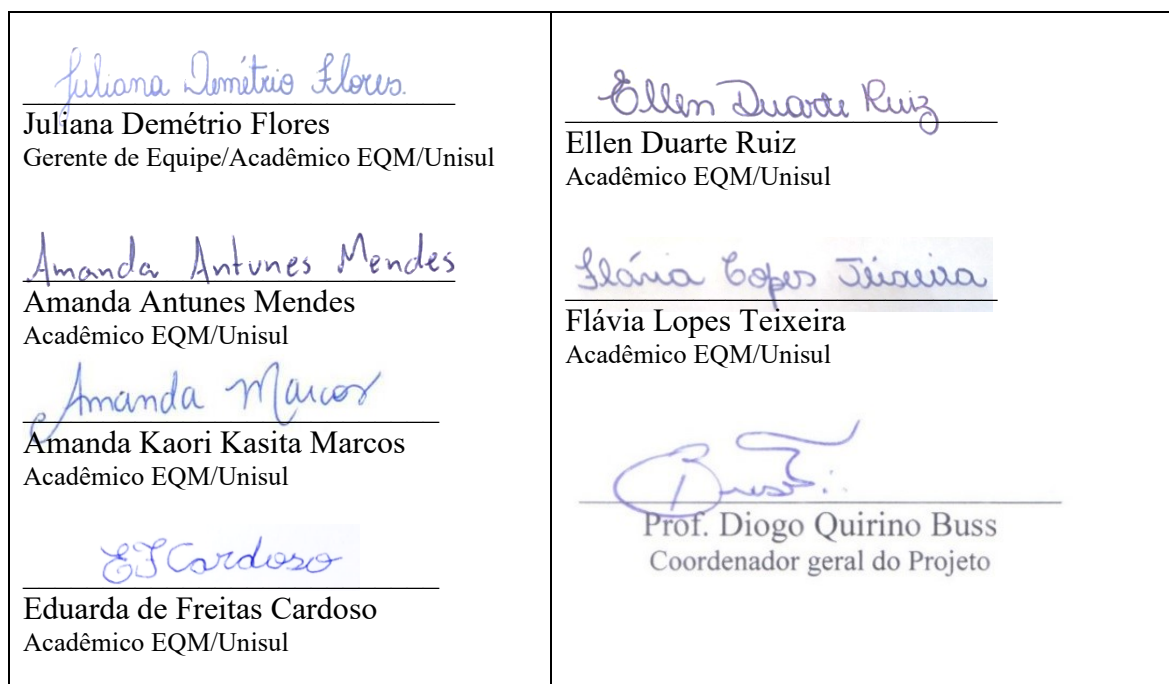 Juliana Demétrio Flores.
Juliana Demétrio Flores
Gerente de Equipe/Acadêmico EQM/Unisul
Amanda Antunes Mendes
Amanda Antunes Mendes
Acadêmico EQM/Unisul
Amanda Marcos
Amanda Kaori Kasita Marcos
Acadêmico EQM/Unisul
EFCardoso
Eduarda de Freitas Cardoso
Acadêmico EQM/Unisul
Ellen Duarte Ruiz
Ellen Duarte Ruiz
Acadêmico EQM/Unisul
Flávia Lopes Teixeira
Flávia Lopes Teixeira
Acadêmico EQM/Unisul
Buss
Prof. Diogo Quirino Buss
Coordenador geral do Projeto